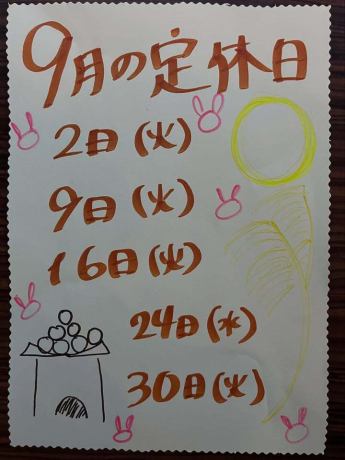 9月の定休日
2日(火)
9日(火)
16日(火)
24日(水)
30日(火)